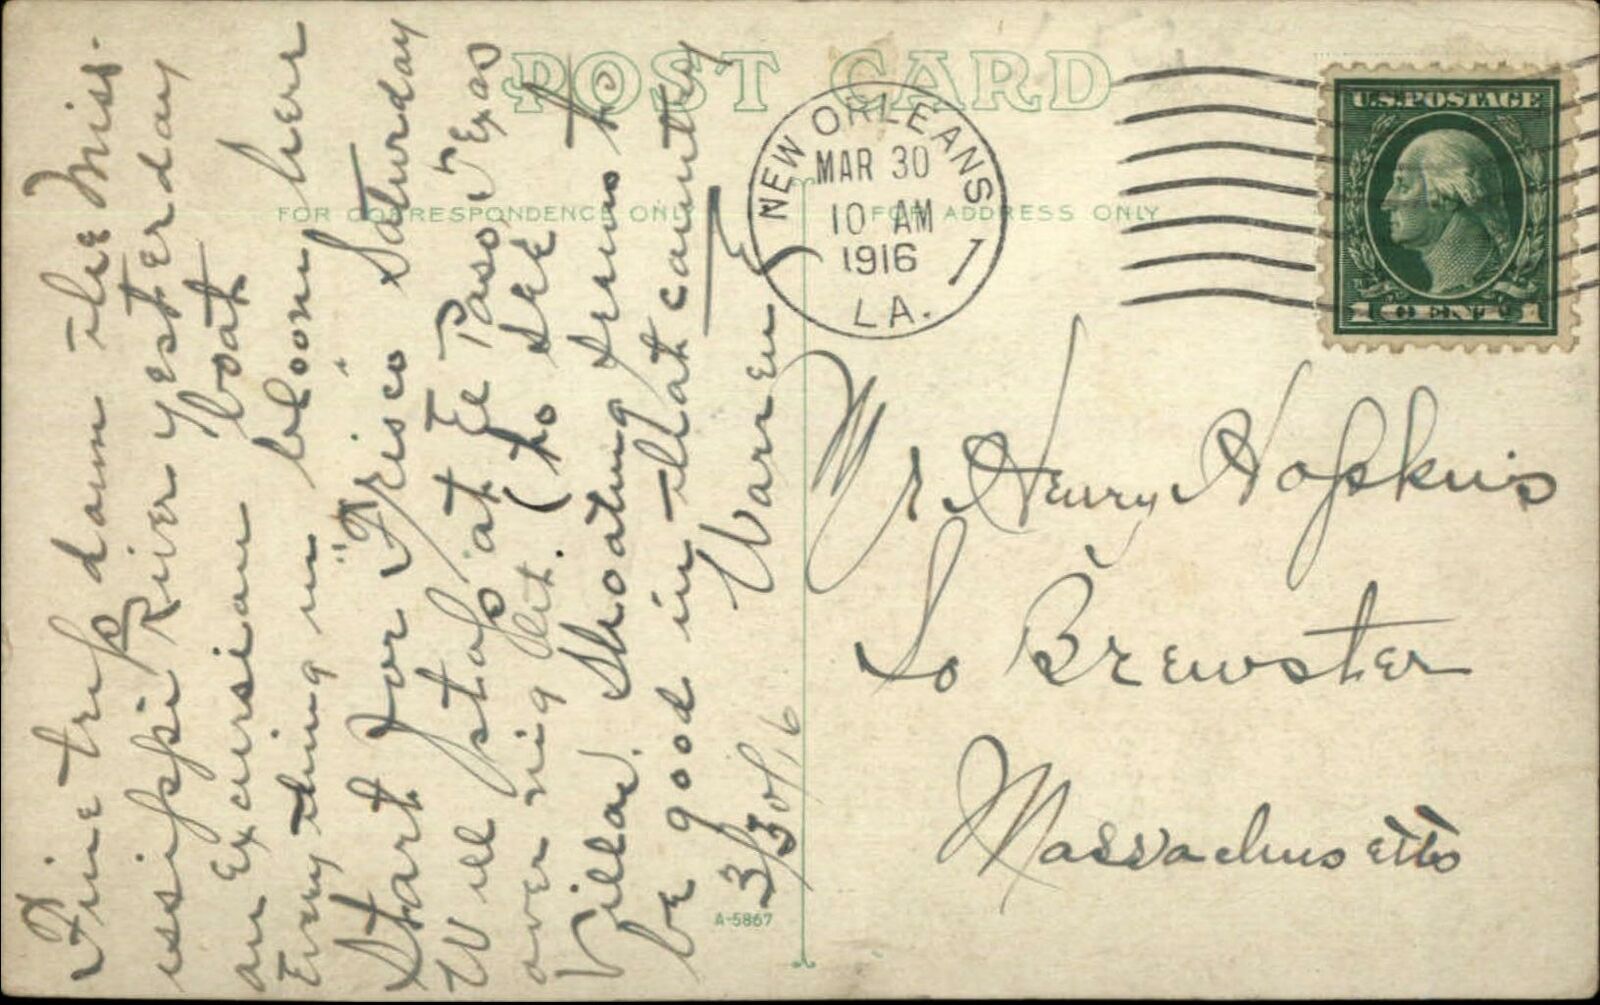 POST CARD
FOR CORRESPONDENCE ONLY
FOR ADDRESS ONLY
NEW ORLEANS
MAR 30
10 AM
1916
LA.
1
U.S. POSTAGE
1 CENT 1
Fine trip down the Miss-
issippi River yesterday
on Excursion boat
Every thing in bloom here
Start for "Frisco Saturday
Will stop at El Paso, Texas
over night. (to see
Villa). Shooting seems to
be good in that country
Warren E
3/30/16
Mr Henry Hopkins
So Brewster
Massachusetts
A-5867